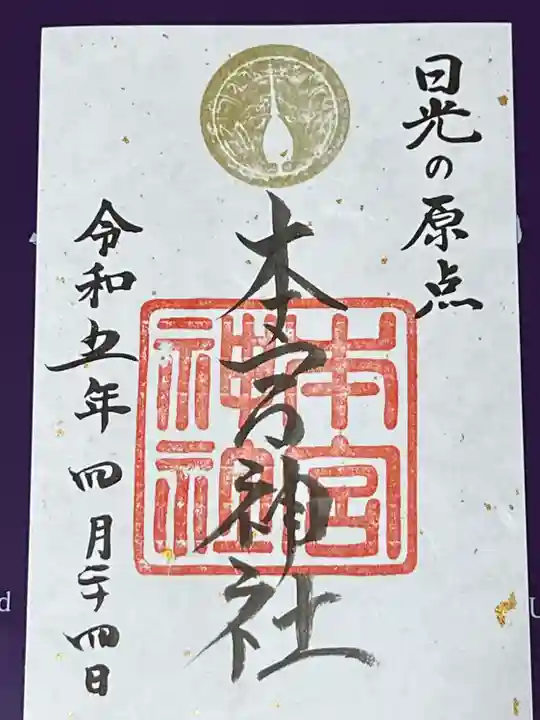 日光の原点
本宮神社
本宮
神社
令和五年 四月二十四日
d
U